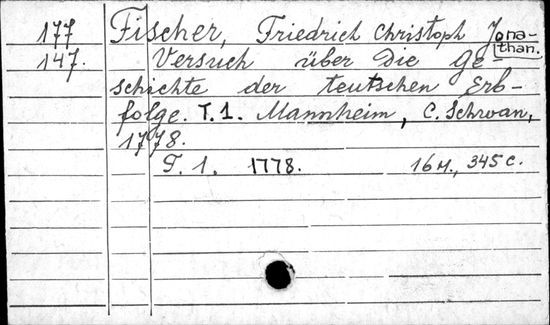 177
147.
Fischer, Friedrich Christoph Jona-
than.
Versuch über die Ge-
schichte der teutschen Erb-
folge. T.1. Mannheim, C. Schwan,
1778.
T. 1. 1778. 16 н., 345 с.